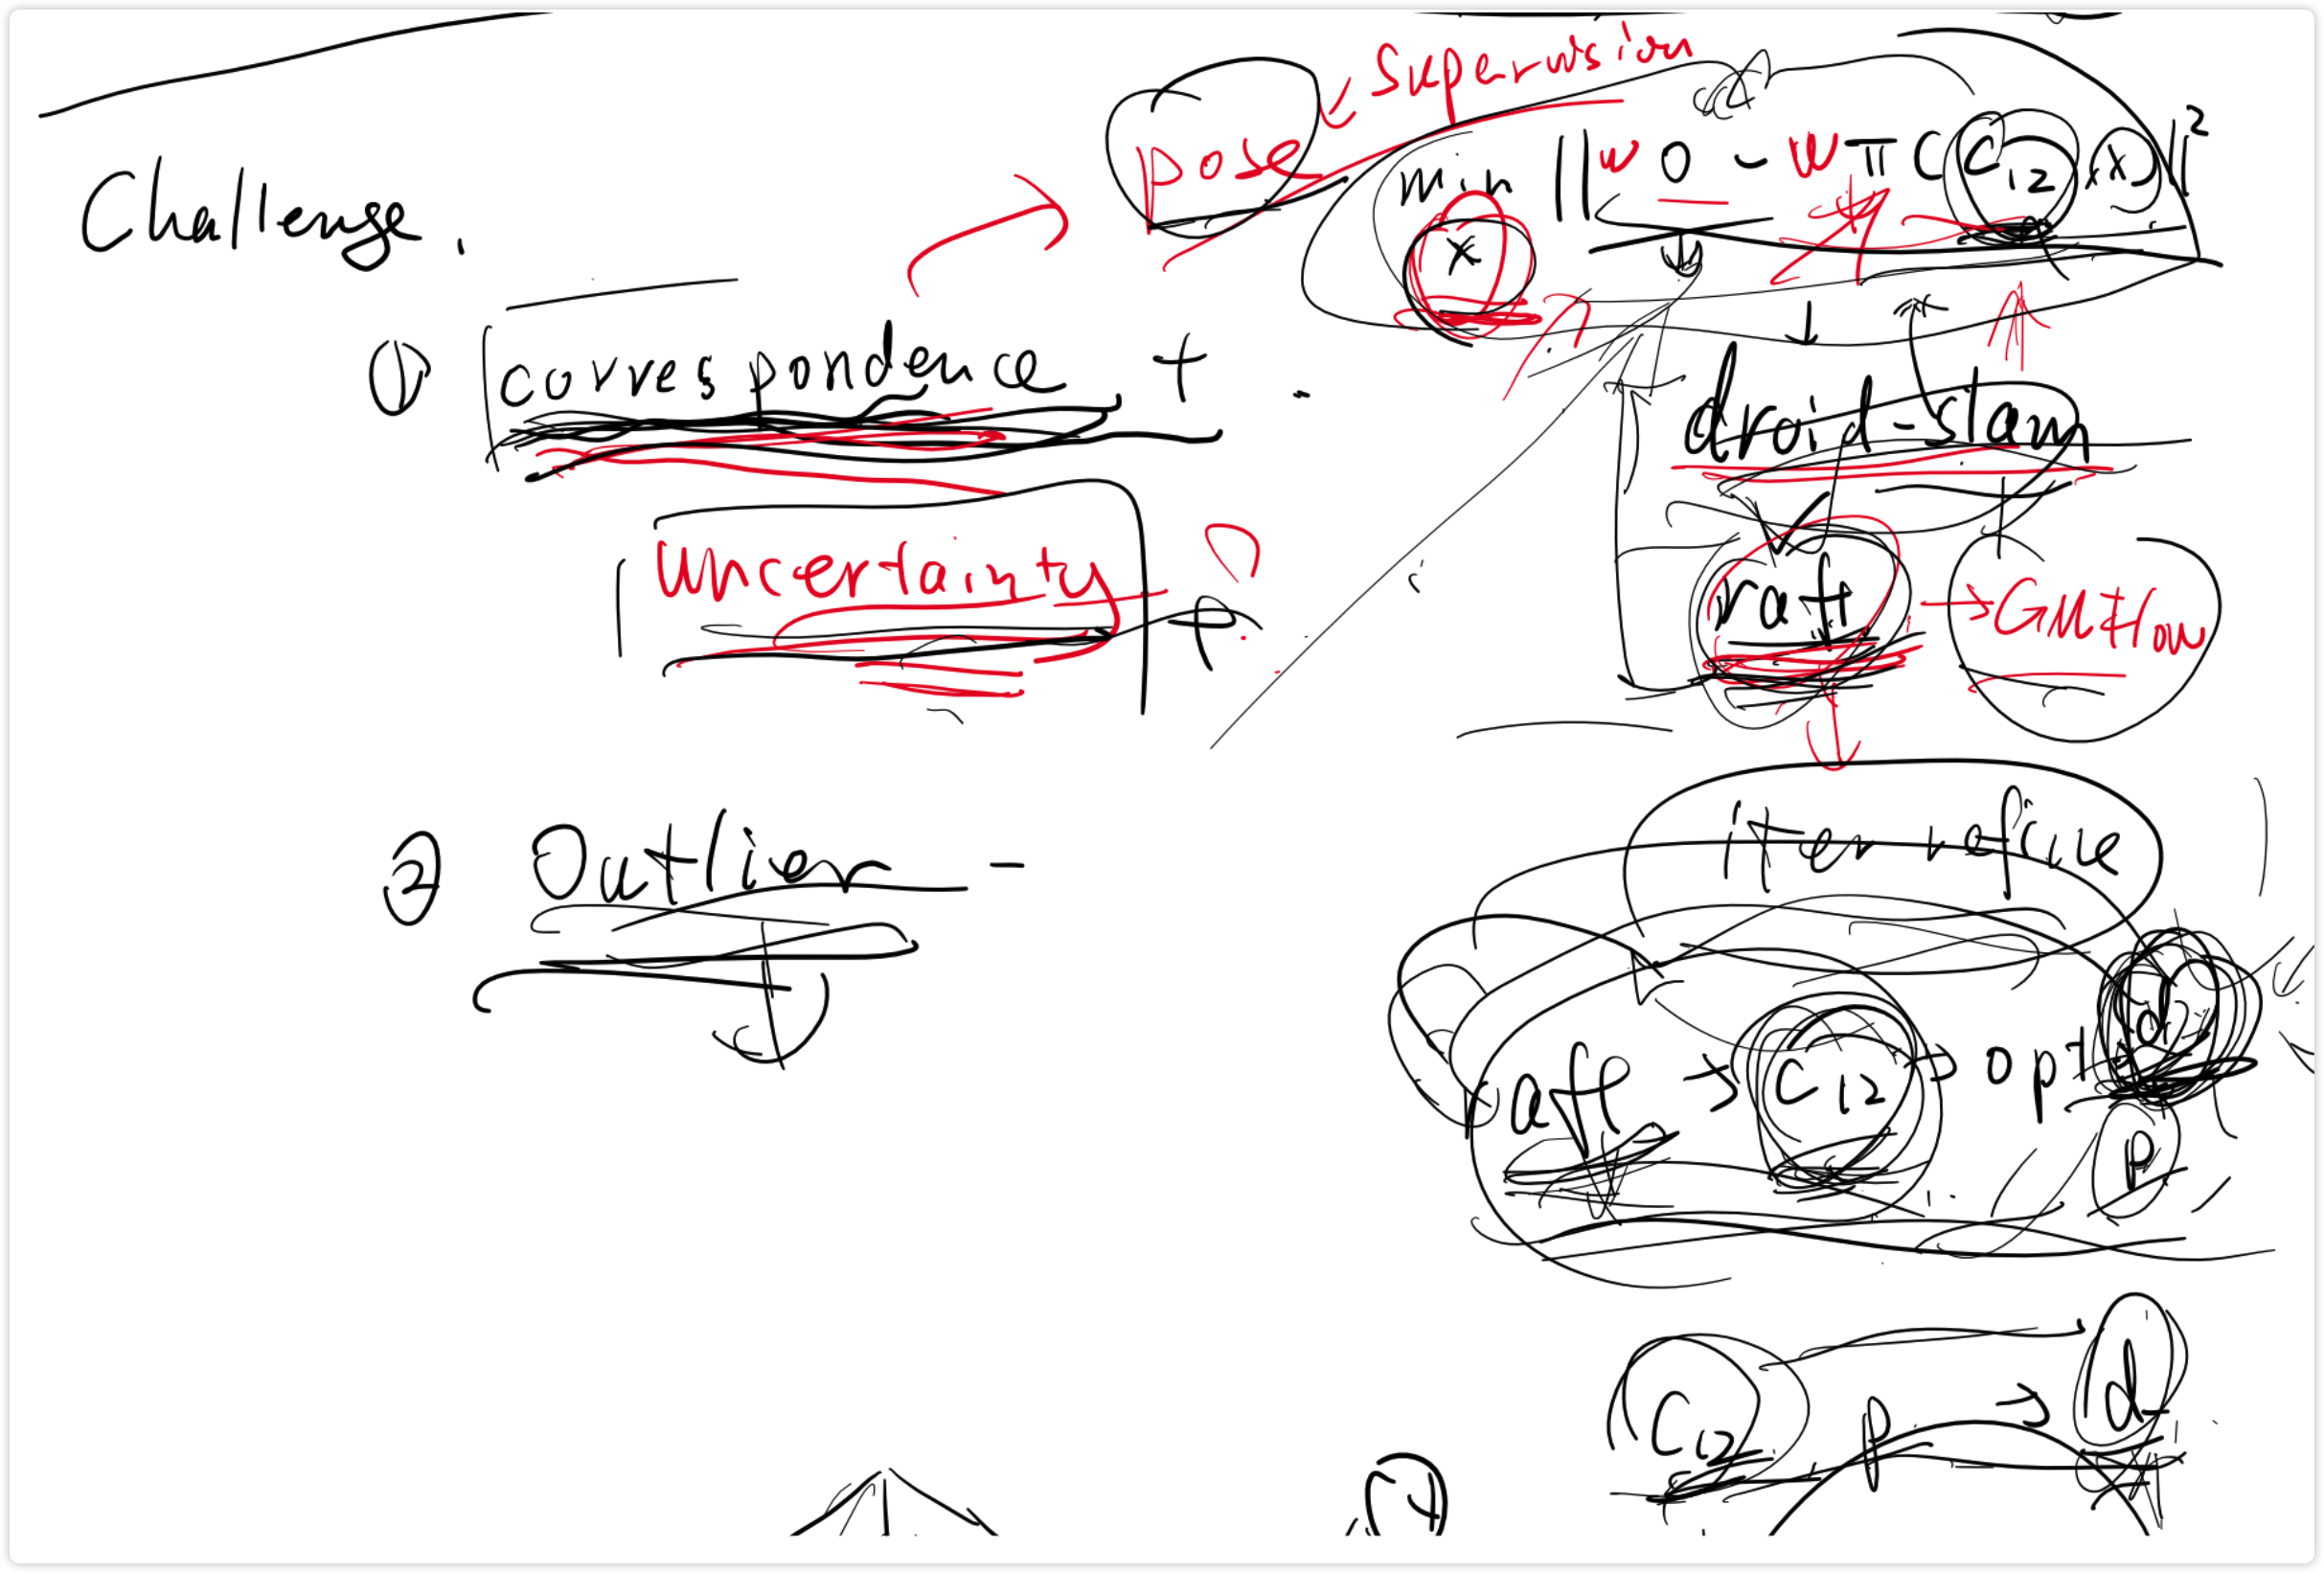 Challenge.
① correspondence + -
uncertainty + ?
② Outlier -
pose ← supervision
min ||w O - w π( C12, x)||²
x
droid-slam
raft → GMFlow
iter refine
raft → C12 → opt d
p
C12 p → d